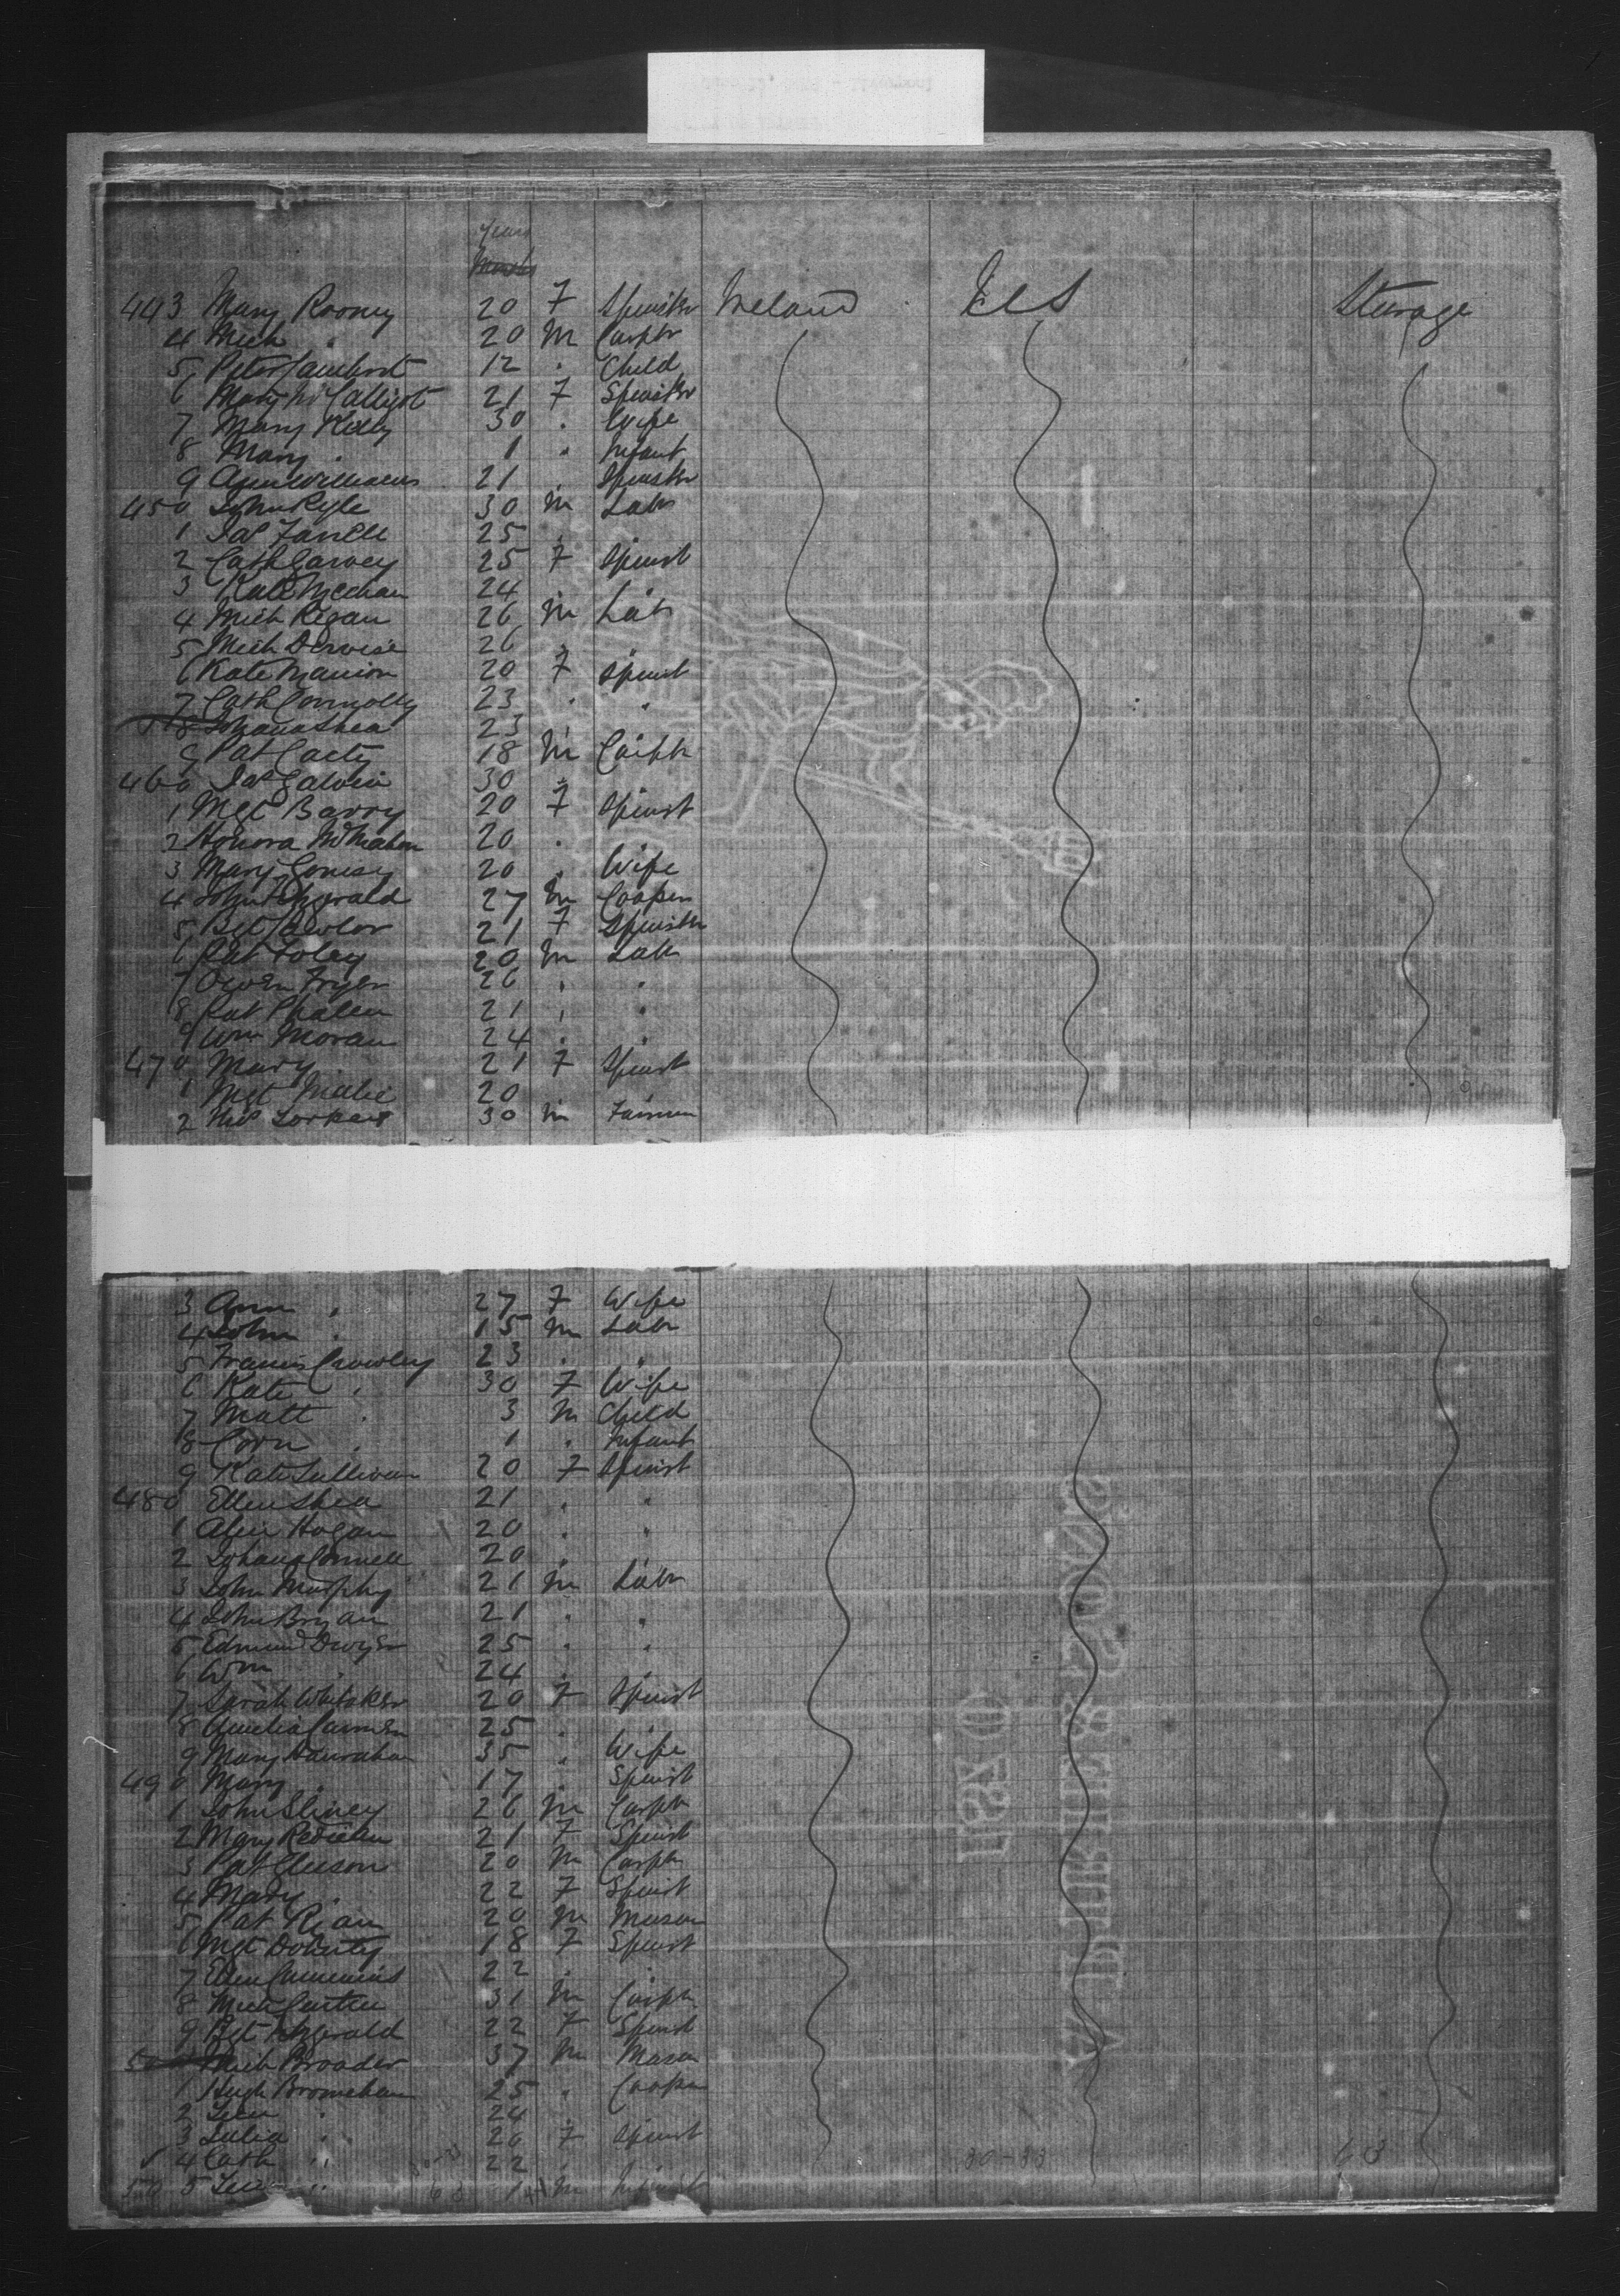 Years
443 Mary Rooney 20 F Spinster Ireland U S Sterage
4 Mich " 20 M Carptr
5 Peter Lambert 12 " Child
6 Mary 21 F Spinster
7 Mary Kelly 30 " Wife
8 Mary " 1 " Infant
9 Ann Williams 21 " Spinster
450 John Kyle 30 M Labr
1 Jas Farrell 25 "
2 Cath Garvey 25 F Spinst
3 Kate Meehan 24 "
4 Mich Regan 26 M Labr
5 Mich 26 "
6 Kate Manion 20 F Spinst
7 Cath Connolly 23 " "
8 Johana Shea 23 "
9 Pat Carty 18 M Carptr
460 Jas Galvin 30 "
1 Mgt Barry 20 F Spinst
2 Honora McMahon 20 "
3 Mary 20 " Wife
4 John Fitzgerald 27 M Cooper
5 Bgt Lawlor 21 F Spinster
6 Pat Foley 20 M Labr
7 Owen Fryer 26 " "
8 Pat Phalen 21 " "
9 Wm Moran 24 "
470 Mary " 21 F Spinst
1 Mgt 20
2 30 M Farmer
3 Ann " 27 F Wife
4 John " 15 M Labr
5 Francis Crowley 23 " "
6 Kate " 30 F Wife
7 Matt " 3 M Child
8 Corn " 1 " Infant
9 Kate Sullivan 20 F Spinst
480 Ellen Shea 21 " "
1 Alice Hogan 20 " "
2 Johana Connell 20 "
3 John Murphy 21 M Labr
4 John Bryan 21 " "
5 Edmund Dwyer 25 " "
6 Wm " 24 "
7 Sarah Whitaker 20 F Spinst
8 Amelia 25 "
9 Mary Hanrahan 35 " Wife
490 Mary " 17 " Spinst
1 John Sliney 26 M Carptr
2 Mary 21 F Spinst
3 Pat Gleeson 20 M Carptr
4 Mary " 22 F Spinst
5 Pat Rian 20 M Mason
6 Mgt Doherty 18 F Spinst
7 Ellen Cummins 22 " "
8 Mich 31 M Carptr
9 Bgt Fitzgerald 22 F Spinst
Mich Broader 37 M Mason
1 Hugh 25 " Cooper
2 24 "
3 Julia " 26 F Spinst
4 Cath " 22 " 30-33 63
505 63 1 M Infant